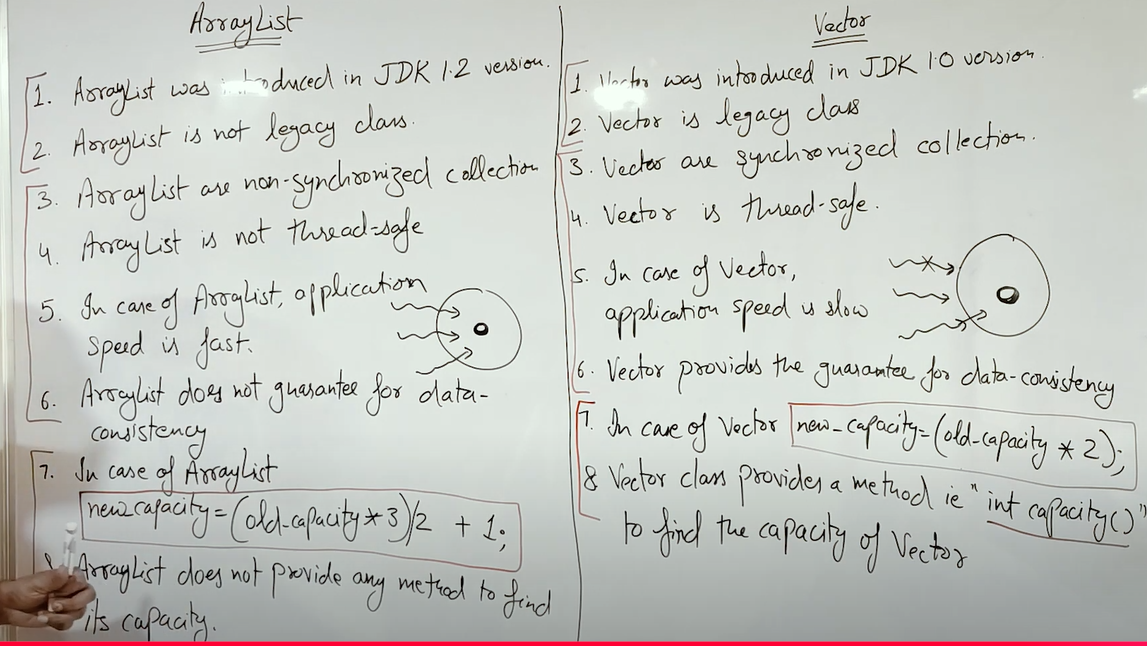 ArrayList
1. ArrayList was introduced in JDK 1.2 version.
2. ArrayList is not legacy class.
3. ArrayList are non-synchronized collection
4. ArrayList is not thread-safe
5. In case of ArrayList, application
speed is fast.
6. ArrayList does not guarantee for data-
consistency
7. In case of ArrayList
new_capacity=(old-capacity*3)/2 + 1;
ArrayList does not provide any method to find
its capacity.
Vector
1. Vector was introduced in JDK 1.0 version.
2. Vector is legacy class
3. Vector are synchronized collection.
4. Vector is thread-safe.
5. In case of Vector,
application speed is slow
6. Vector provides the guarantee for data-consistency
7. In case of Vector new_capacity=(old-capacity * 2);
8 Vector class provides a method ie "int capacity()"
to find the capacity of Vector